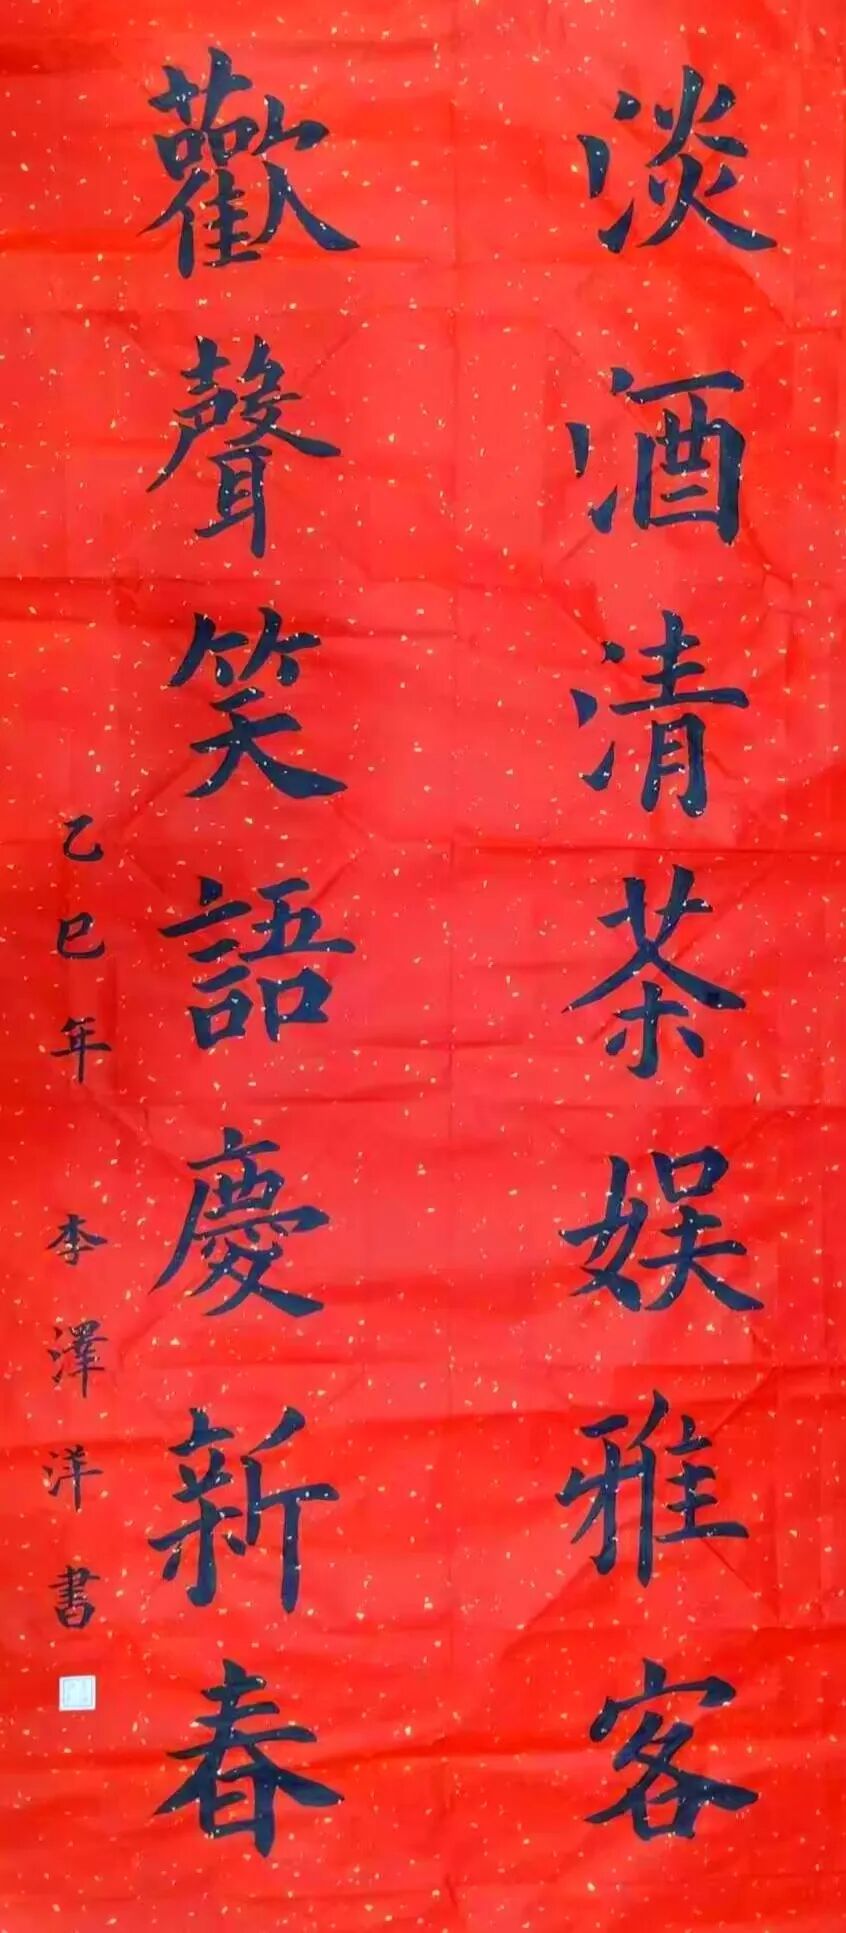 淡酒清茶娱雅客
歡聲笑語慶新春
乙巳年 李澤洋書